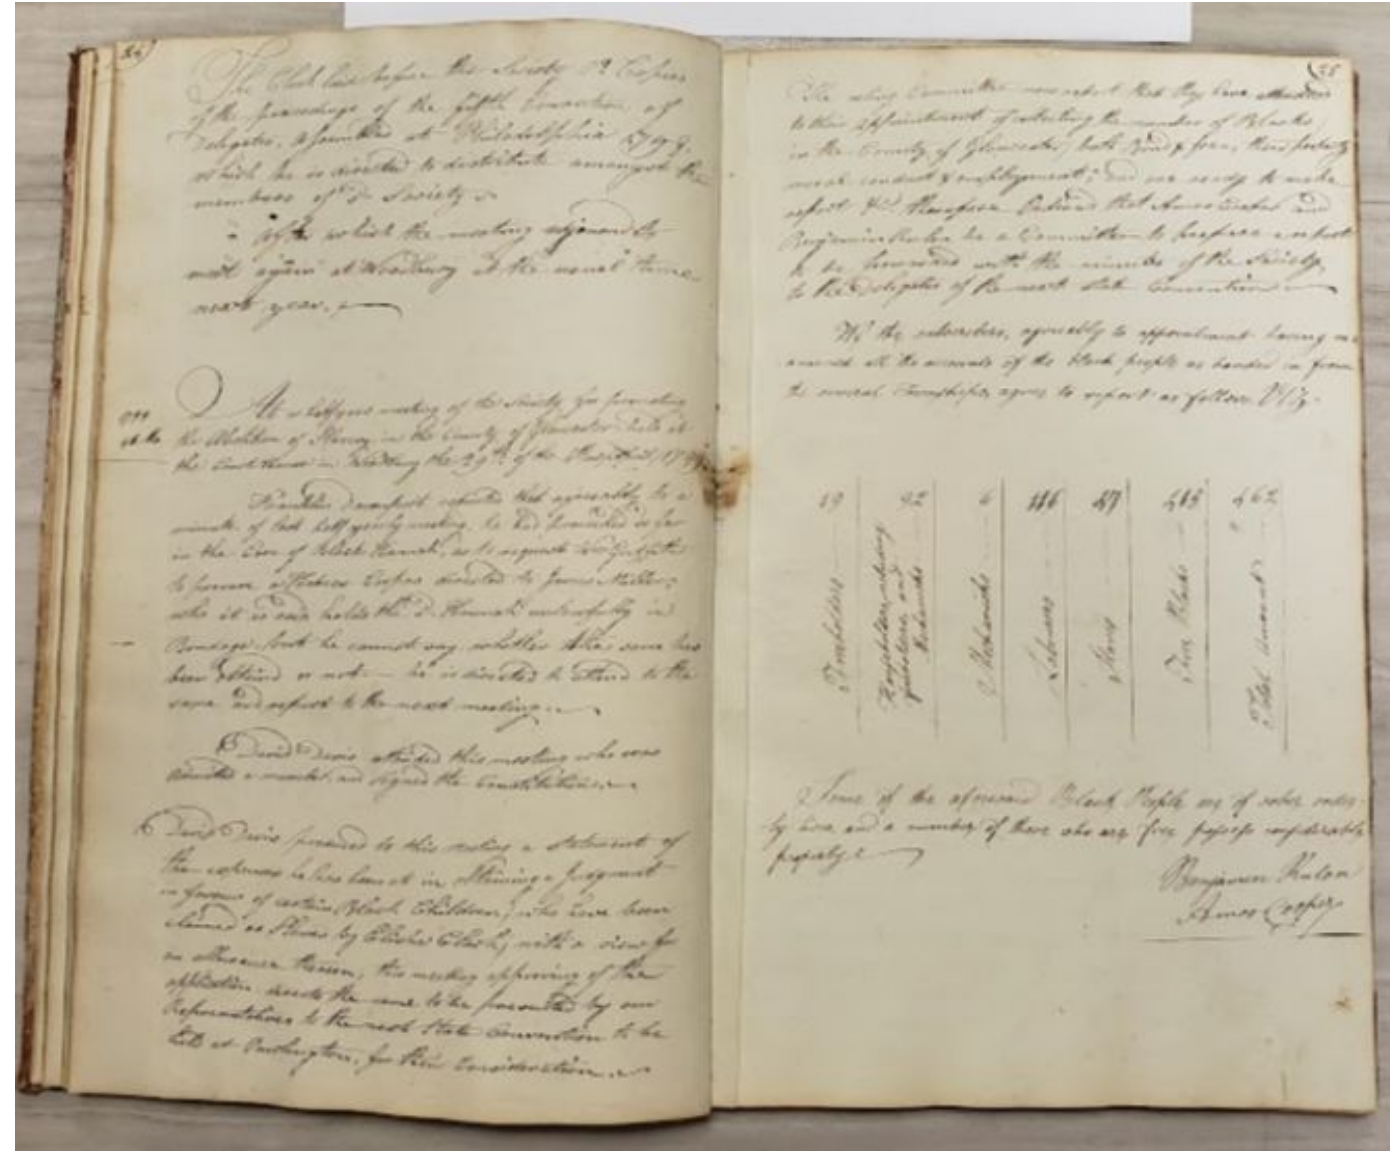 24)
The Clerk laid before the Society 12 Copies
of the proceedings of the fifth Convention of
Delegates, assembled at Philadelphia 1799,
which he is directed to distribute amongst the
members of sd Society
After which the meeting adjourned to
meet again at Woodbury at the usual time
next year.
1799
At a half year meeting of the Society for promoting
the Abolition of Slavery in the County of Gloucester held at
the Court House in Woodbury the 29th of the
Franklin Davenport reported that agreeably to a
minute of last half yearly meeting, he had proceeded so far
in the Case of Black Hannah, as to request
to procure a Habeas Corpus directed to James
who it is said holds the sd Hannah unlawfully in
Bondage, but he cannot say whether the same has
been obtained or not he is directed to attend to the
same and report to the next meeting
David Davis attended this meeting who was
admitted a member and signed the Constitution
David Davis presented to this meeting a statement of
the expenses he has been at in obtaining a Judgment
in favour of certain Black Children, who have been
claimed as Slaves by Elisha Clark, with a view for
an allowance thereon, this meeting approving of the
application directs the same to be presented by our
Representatives to the next State Convention to be
held at Burlington, for their Consideration
(25
The acting Committee now report that they have attended
to their appointment of collecting the number of Blacks
in the County of Gloucester, both Bond & free, their property
moral conduct & employment; and are ready to make
report &c. therefore Ordered that Amos Cooper and
Benjamin Rulon be a Committee to prepare a report
to be forwarded with the minutes of the Society
to the Delegates of the next State Convention
We the subscribers, agreeably to appointment having
examined all the accounts of the black people as handed in from
the several Townships, agree to report as follows Viz.
Freeholders 19
Householders, including
freeholders and
Mechanics 92
Mechanics 6
Labourers 116
Slaves
Free Blacks
Total Amount 462
Some of the aforesaid Black People are of sober order-
ly lives and a number of those who are free possess considerable
property
Benjamin Rulon
Amos Cooper